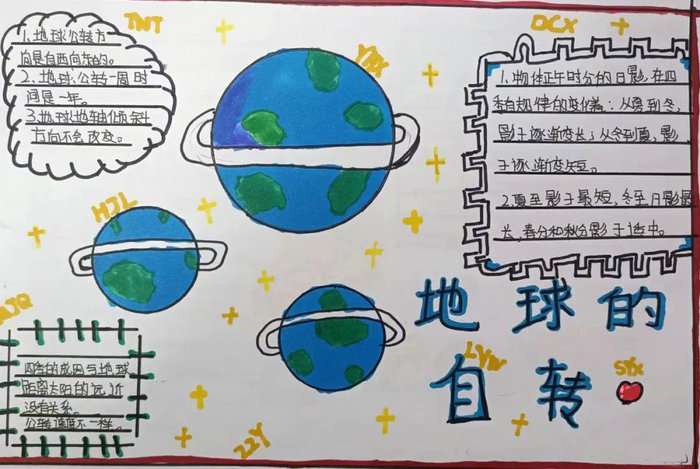 TNT
1.地球公转方
向是自西向东的。
2.地球公转一周时
间是一年。
3.地球地轴倾斜
方向不会改变。
YZX
DCX
1.物体正午时分的日影在四
季有规律的变化着：从夏到冬，
影子逐渐变长；从冬到夏，影
子逐渐变短。
2.夏至影子最短，冬至日影最
长，春分和秋分影子适中。
HJL
地球的
自转
LYW
SYX
四季的成因与地球
距离太阳的远近
没有关系。
公转速度不一样。
ZZY